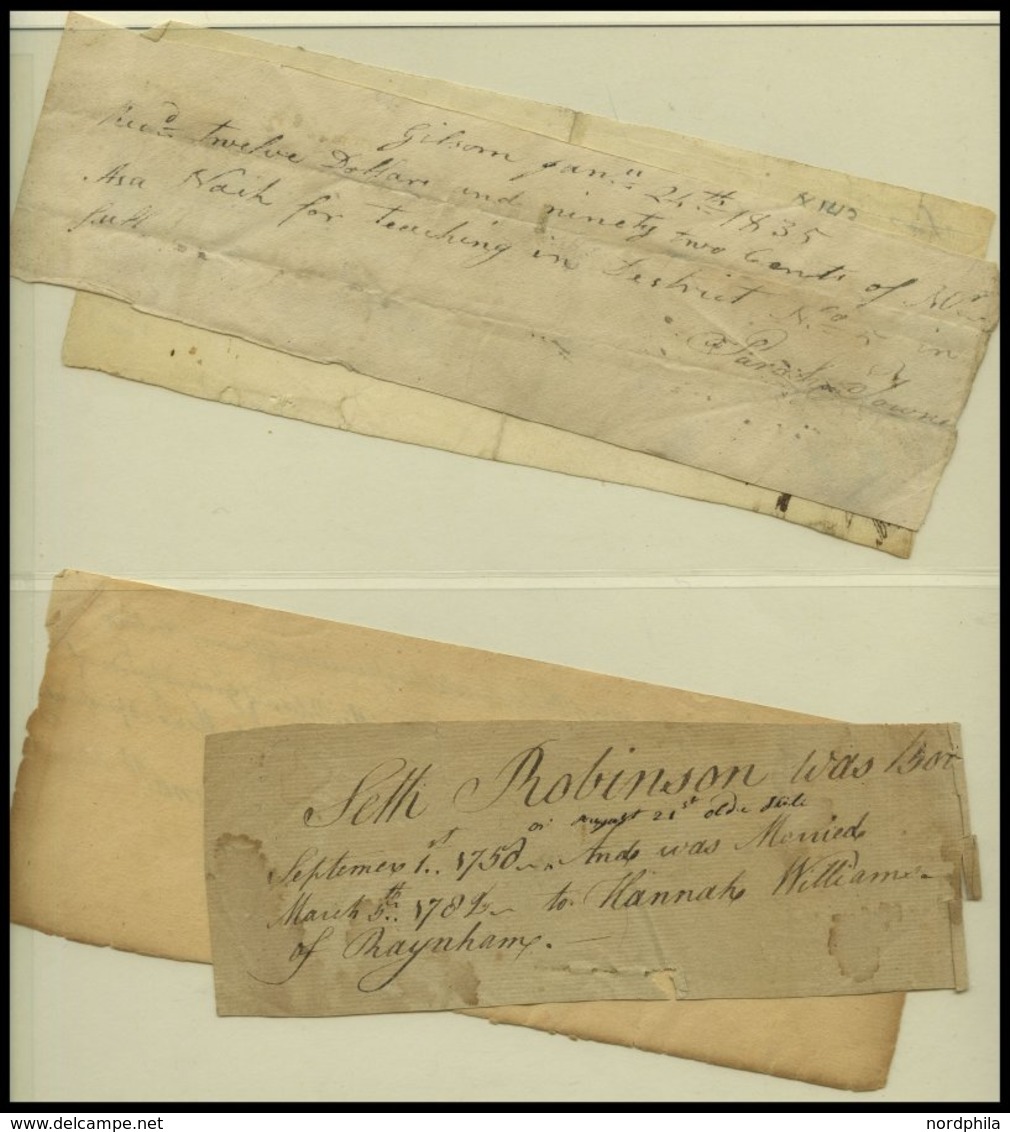 Gilsom Jan.y 24th 1835
Rec.d twelve Dollars and ninety two Cents of Mr
Asa Nash for teaching in Destrict No 5 in
full
Sarah Towne
Seth Robinson was Bor
or August 21st olde Stile
Septemer 1st.. 1750 And was Morried
March 5th.. 1782 to Hannah Williams
of Raynham.
www.delcampe.net
nordphila